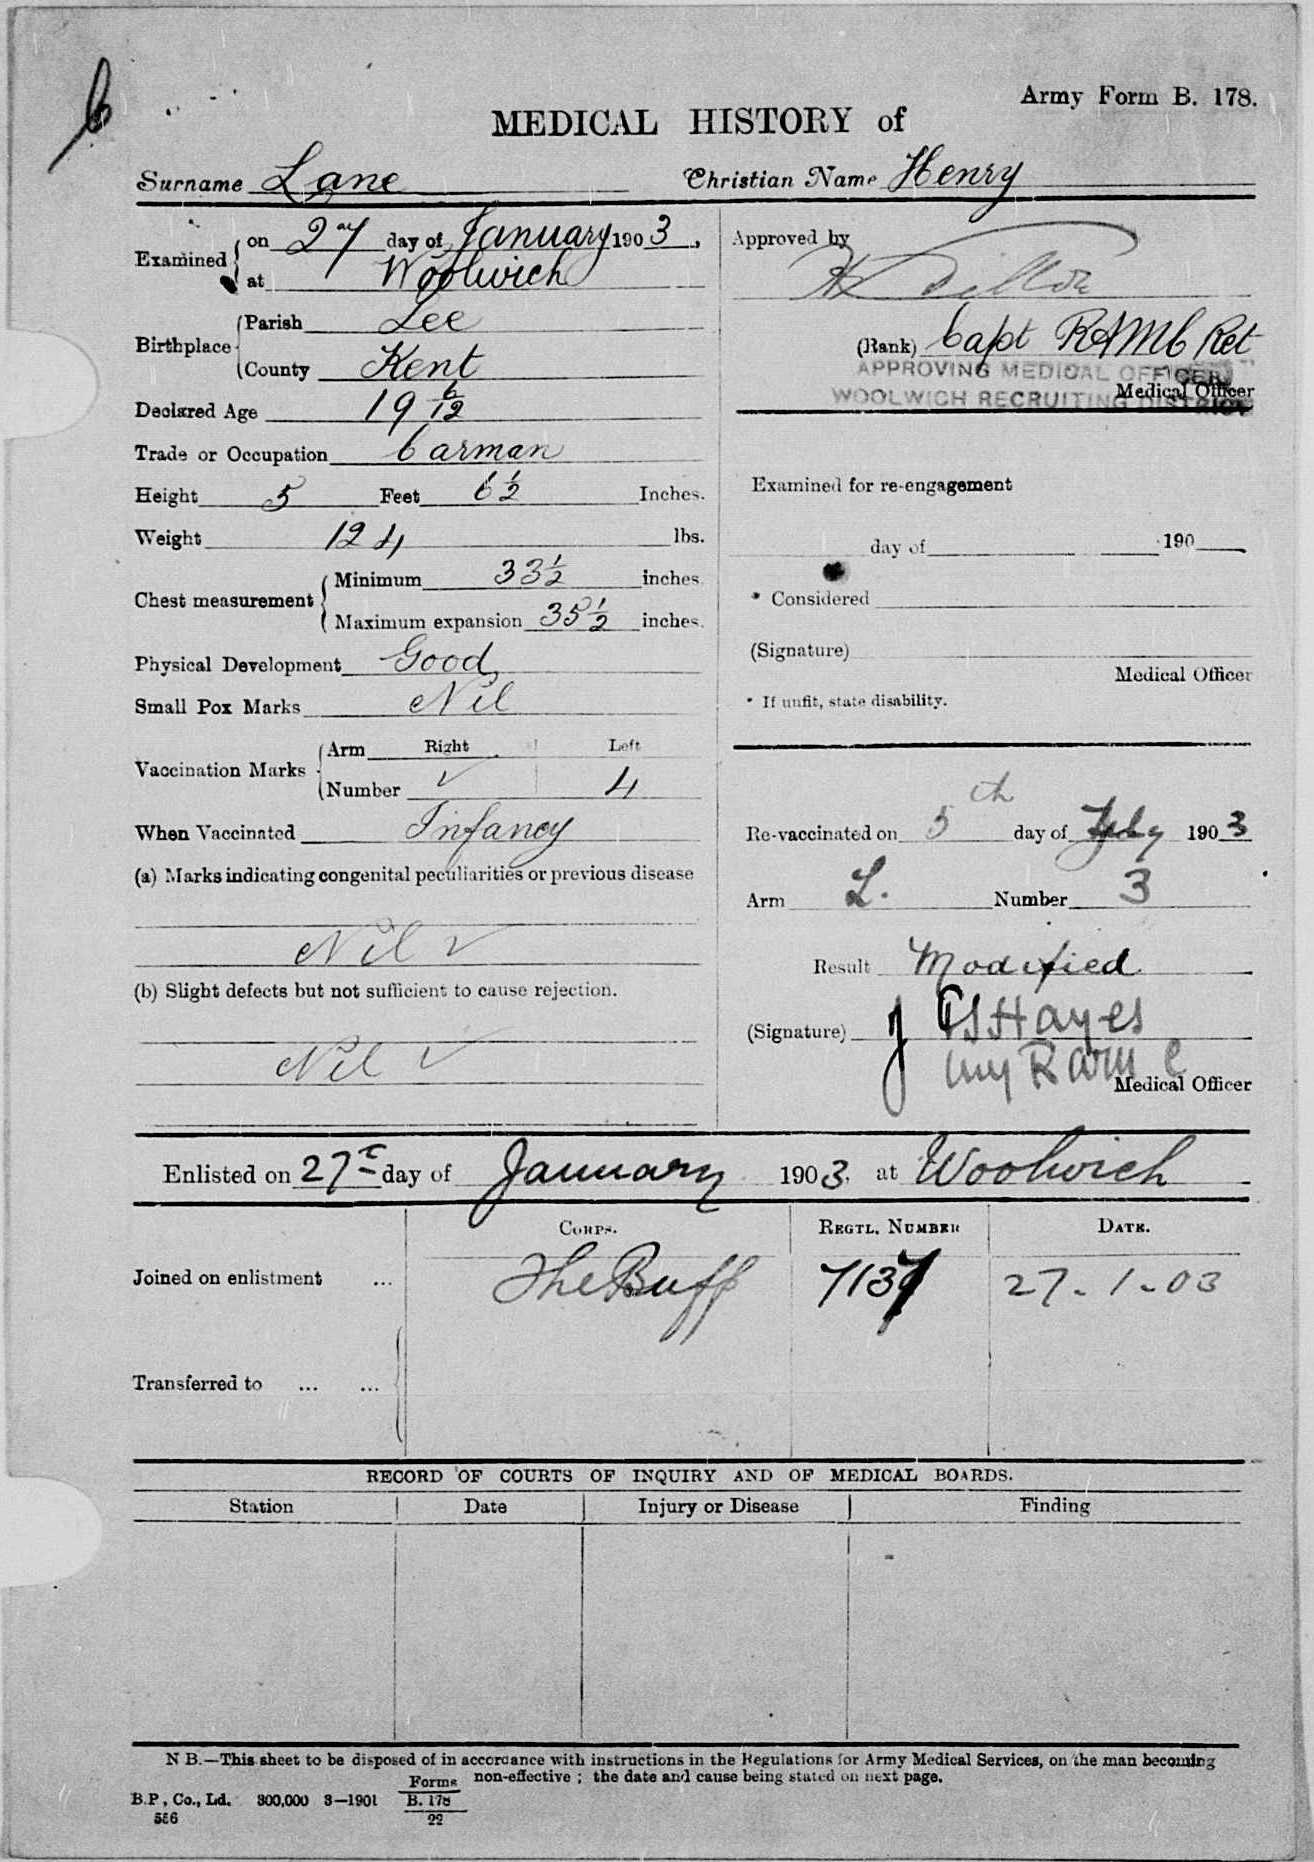 Army Form B. 178.
MEDICAL HISTORY of
Surname Lane Christian Name Henry
Examined on 27 day of January 1903,
at Woolwich
Birthplace Parish Lee
County Kent
Declared Age 19 6/12
Trade or Occupation Carman
Height 5 Feet 6 1/2 Inches.
Weight 124 lbs.
Chest measurement Minimum 33 1/2 inches.
Maximum expansion 35 1/2 inches.
Physical Development Good
Small Pox Marks Nil
Vaccination Marks Arm Right Left
Number ✓ 4
When Vaccinated Infancy
(a) Marks indicating congenital peculiarities or previous disease
Nil ✓
(b) Slight defects but not sufficient to cause rejection.
Nil ✓
Approved by
(Rank) Capt RAMC Ret
APPROVING MEDICAL OFFICER
Medical Officer
WOOLWICH RECRUITING DISTRICT
Examined for re-engagement
day of 190
* Considered
(Signature)
Medical Officer
* If unfit, state disability.
Re-vaccinated on 5th day of 1903
Arm L. Number 3
Result Modified
(Signature) Hayes
RAMC
Medical Officer
Enlisted on 27 day of January 1903, at Woolwich
CORPS. REGTL. NUMBER DATE.
Joined on enlistment ... The Buffs 7137 27-1-03
Transferred to ... ...
RECORD OF COURTS OF INQUIRY AND OF MEDICAL BOARDS.
Station Date Injury or Disease Finding
N B.—This sheet to be disposed of in accordance with instructions in the Regulations for Army Medical Services, on the man becoming
non-effective ; the date and cause being stated on next page.
B.P., Co., Ld. 300,000 3—1901 Forms
B. 178
22
556